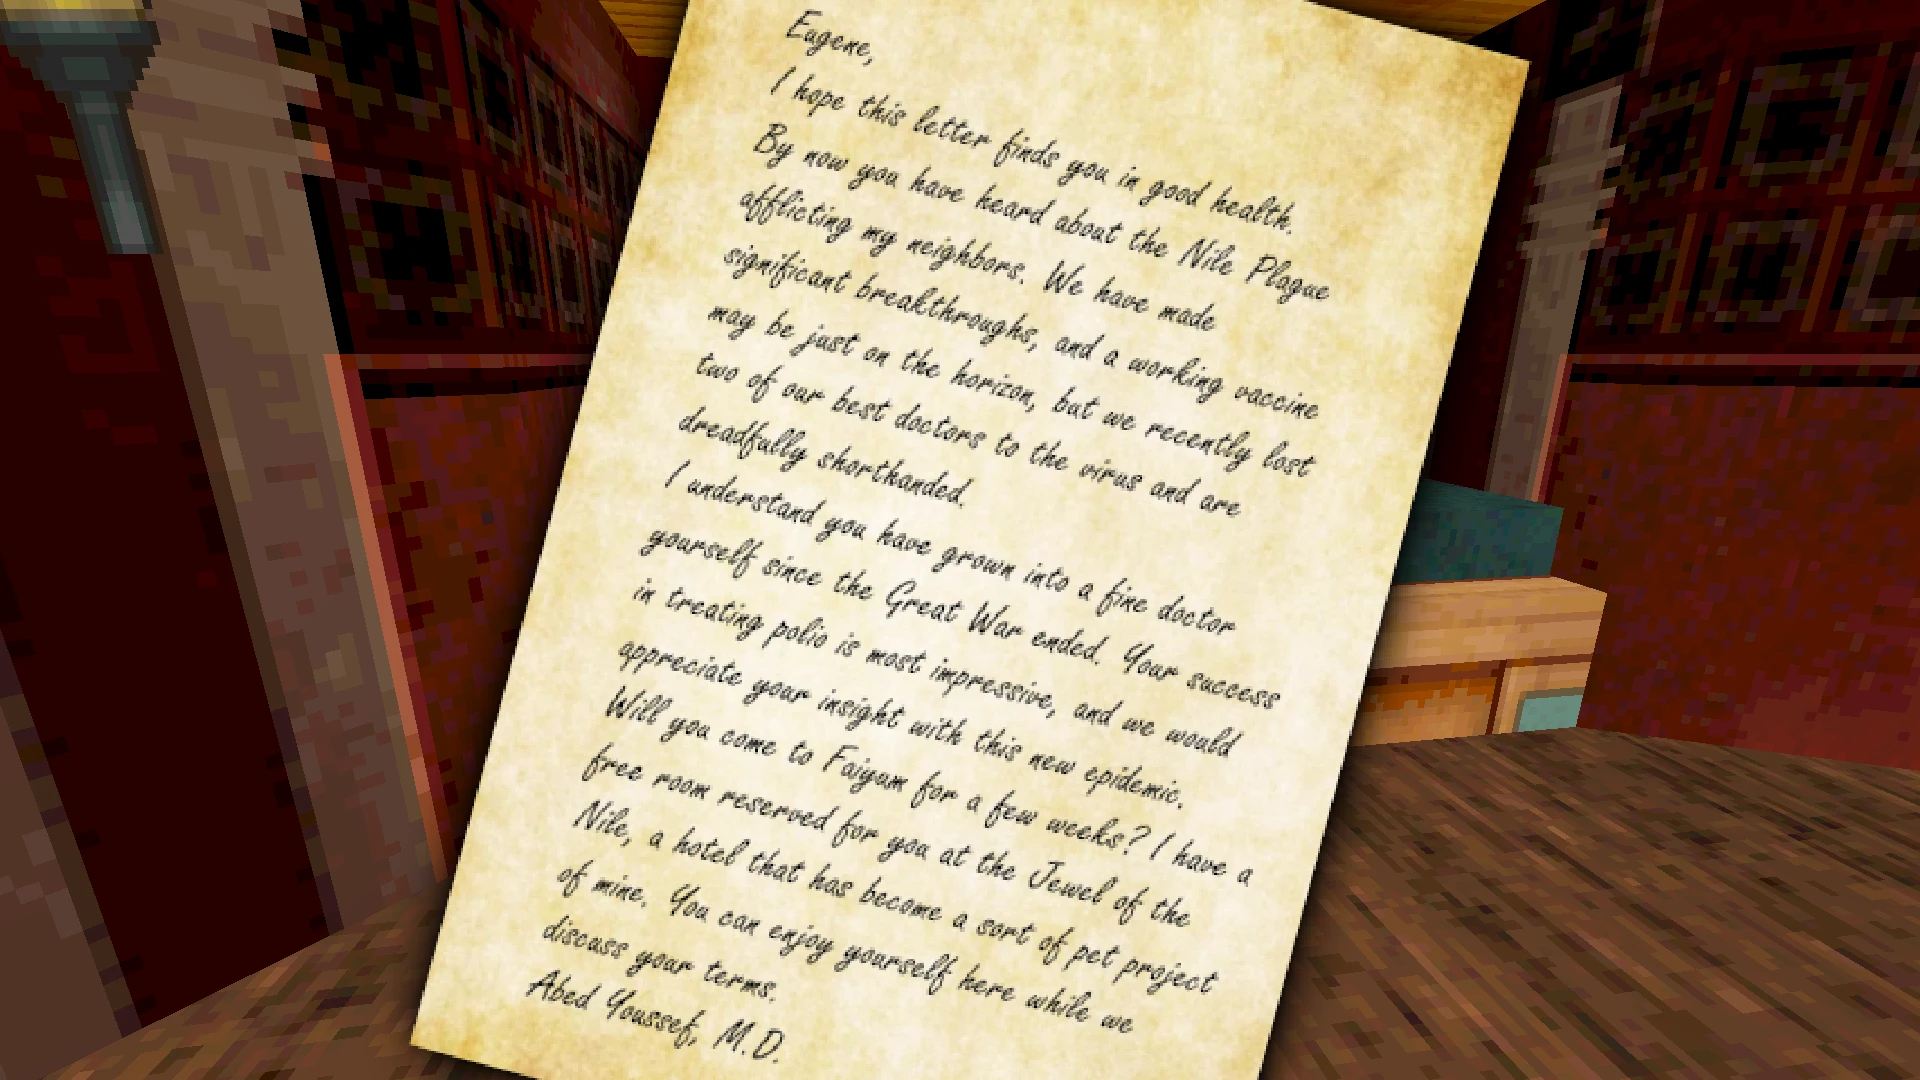 Eugene,
I hope this letter finds you in good health.
By now you have heard about the Nile Plague
afflicting my neighbors. We have made
significant breakthroughs, and a working vaccine
may be just on the horizon, but we recently lost
two of our best doctors to the virus and are
dreadfully shorthanded.
I understand you have grown into a fine doctor
yourself since the Great War ended. Your success
in treating polio is most impressive, and we would
appreciate your insight with this new epidemic.
Will you come to Faiyum for a few weeks? I have a
free room reserved for you at the Jewel of the
Nile, a hotel that has become a sort of pet project
of mine. You can enjoy yourself here while we
discuss your terms.
Abed Youssef, M.D.